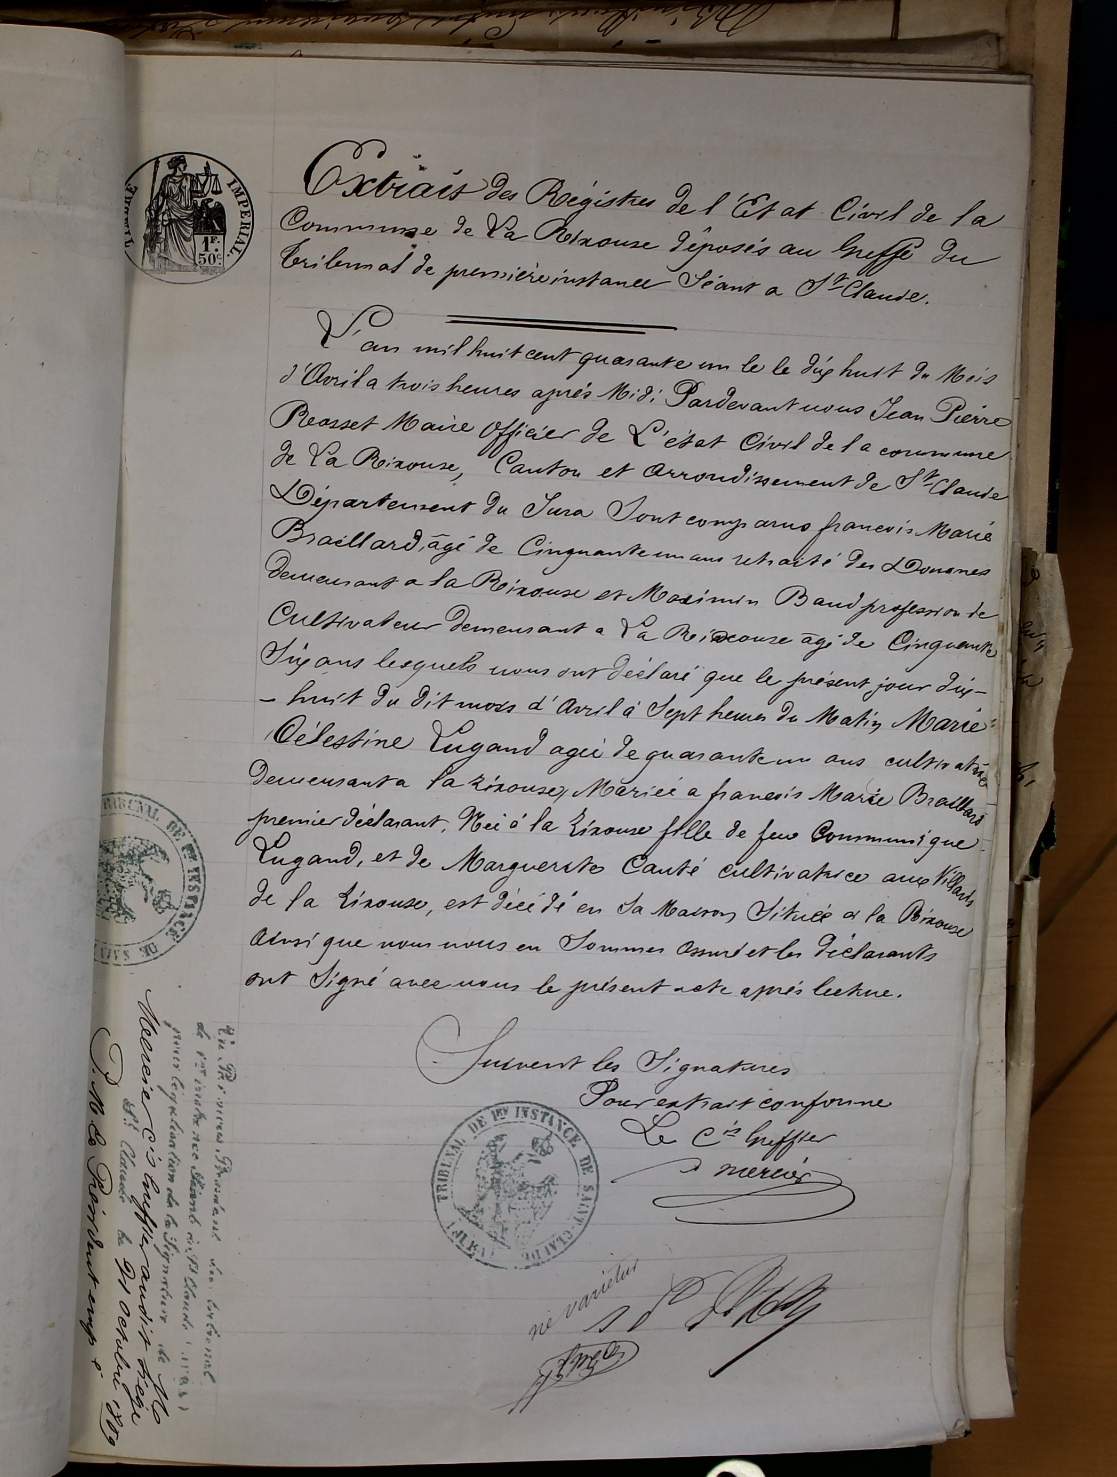 TIMBRE IMPERIAL
1 F.
50 c.
Extrait des Régistres de l'Etat Civil de la
Commune de La Rixouse déposés au Greffe du
Tribunal de première instance Séant a St Claude.
L'an mil huit cent quarante un le le dix huit du Mois
d'Avril a trois heures après Midi Pardevant nous Jean Pierre
Rosset Maire Officier de L'état Civil de la commune
de La Rixouse, Canton et Arrondissement de St Claude
Département du Jura Sont comparus francois Marie
Braillard, âgé de Cinquante un ans retraité des Douanes
demeurant a la Rixouse et Maximin Baud profession de
Cultivateur demeurant a La Rixouse âgé de Cinquante
Six ans lesquels nous ont déclaré que le présent jour dix-
- huit du dit mois d'Avril à Sept heures du Matin Marie
Célestine Lugand agée de quarante un ans cultivatrice
demeurant a la Rixouse, Mariée a francois Marie Braillard
premier déclarant, Née à la Rixouse fille de feu Communique
Lugand, et de Marguerite Canté cultivatrice aux Villards
de la Rixouse, est décédé en Sa Maison Située a la Rixouse
Ainsi que nous nous en Sommes assuré et les déclarants
ont Signé avec nous le présent acte après lecture.
Suivent les Signatures
Pour extrait conforme
Le Cis Greffier
Mercier
TRIBUNAL DE 1re INSTANCE DE SAINT-CLAUDE (JURA)
ne varietur
TRIBUNAL DE 1re INSTANCE
DE SAINT
Vu Par nous Président du tribunal
de 1re instance séant à St Claude (Jura)
pour légalisation de la Signature de M
Mercier Cis Greffier audit Siège
St Claude le 21 Octobre 1869
P. M. Le Président emp é